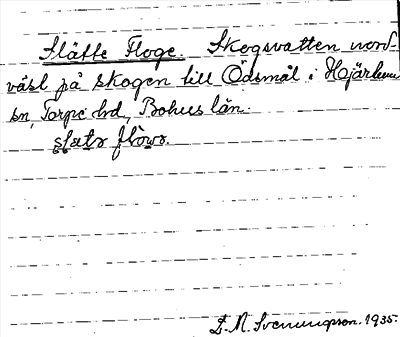 Slätte Floge. Skogsvatten nord-
väst på skogen till Ödsmål i Hjärtums
sn, Torpe hd, Bohus län.
slæta flowo.
D. N. Svenungsson. 1935.